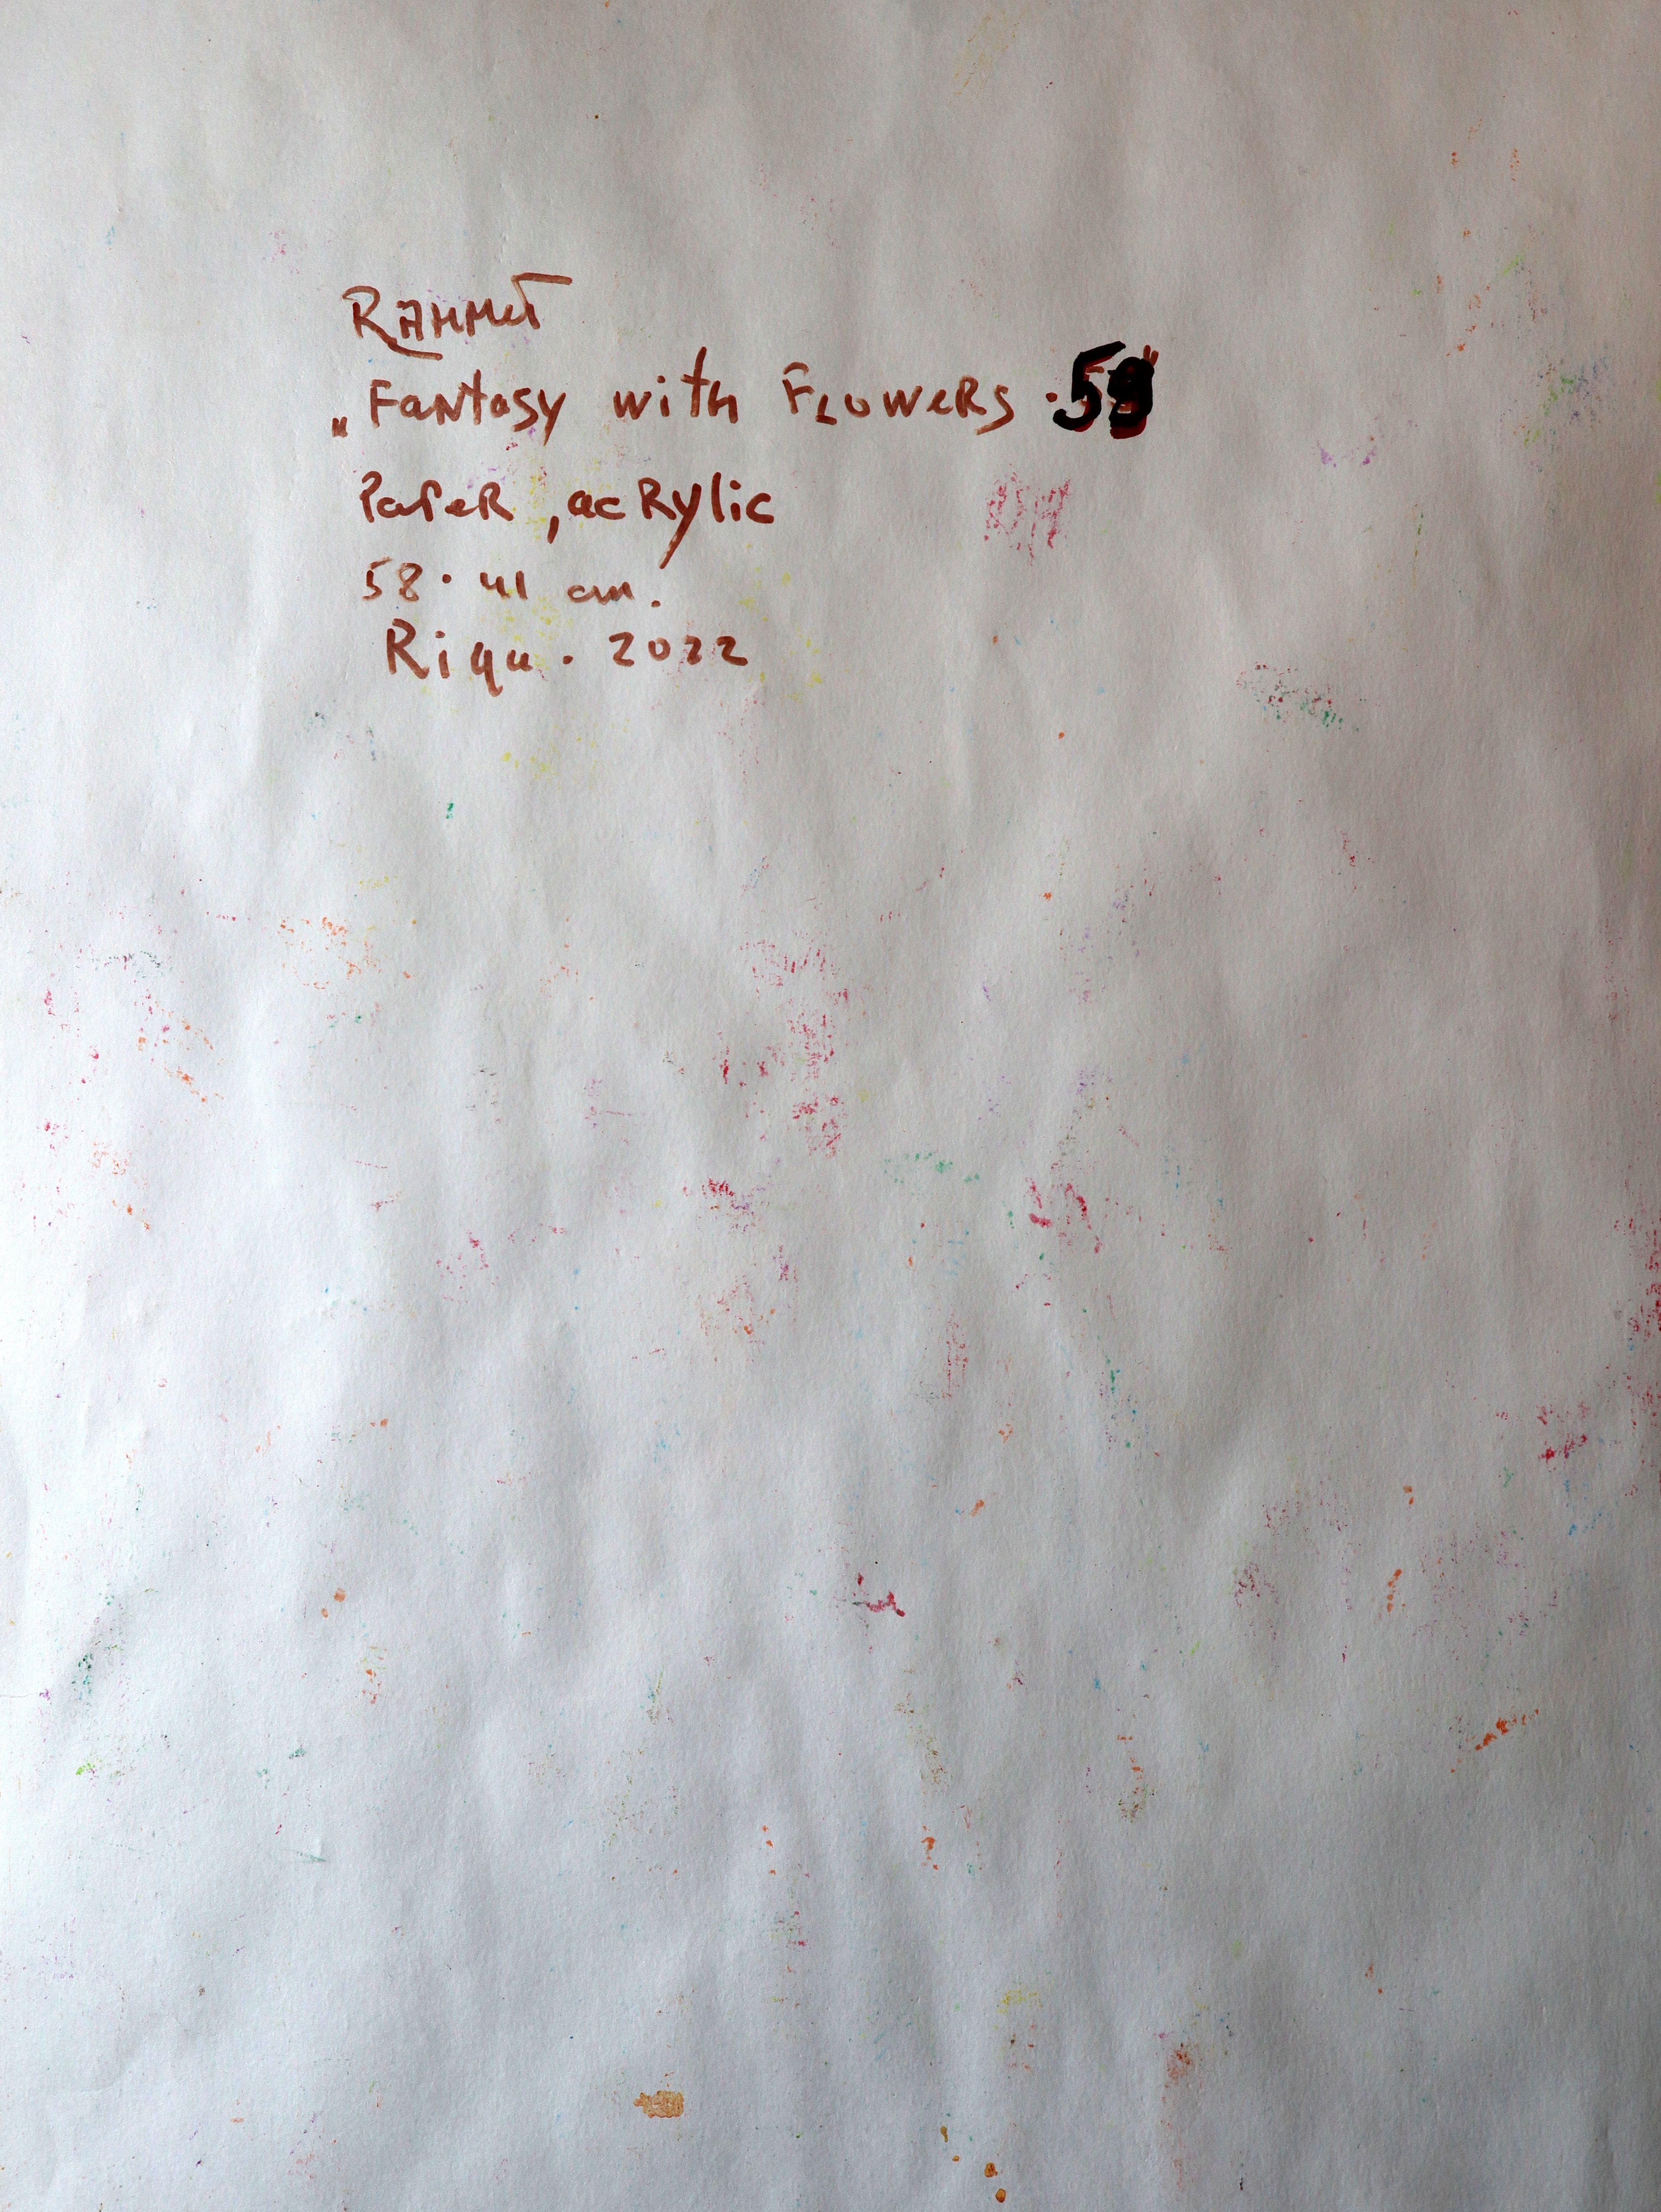 „Fantasy with Flowers
Paper, acrylic
58 · 41 cm.
Riga . 2022